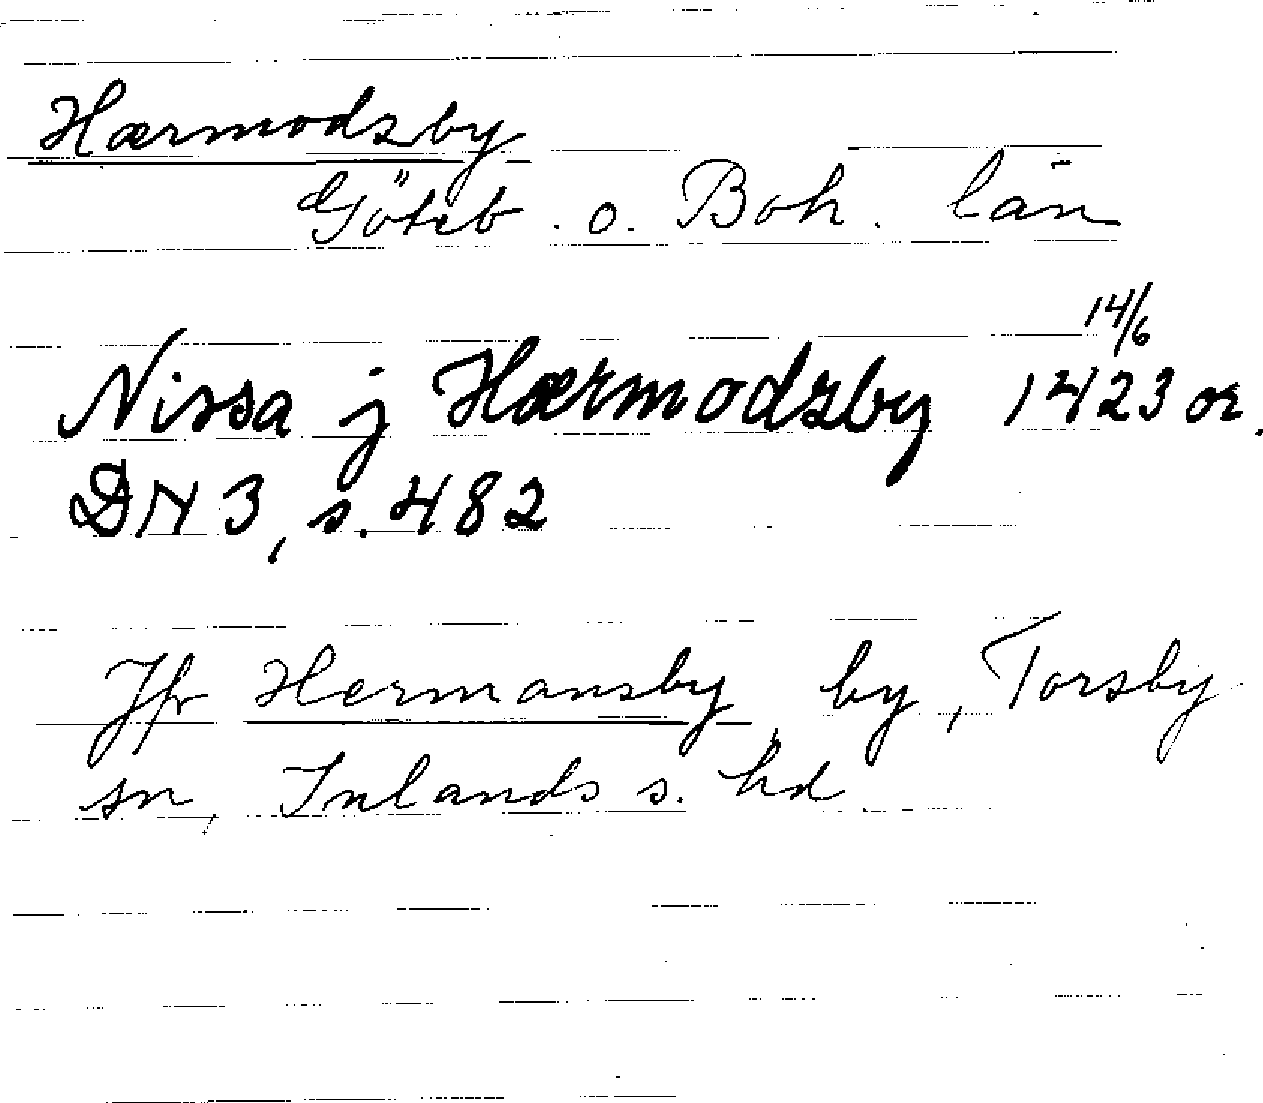 Hærmodzby
Göteb. o. Boh. län
14/6
Nissa j Hærmodzby 1423 or.
DN 3, s. 482
Jfr Hermansby, by, Torsby
sn, Inlands s. hd